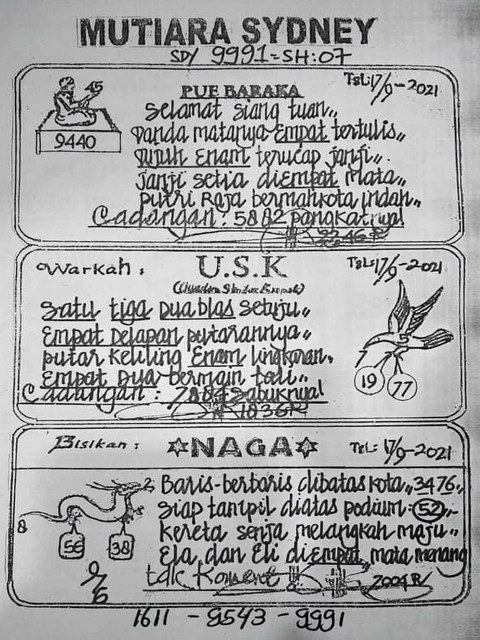 MUTIARA SYDNEY
SDY 9991 = SH: 07
TSL: 17/9-2021
PUE BARAKA
9440
Selamat siang tuan,,
Panda matanya empat tertulis,,
Tujuh enam terucap janji,,
Janji setia diempat mata,,
Putri Raja bermahkota indah,,
Cadangan: 5882 pangkatnya!
2246 R
Warkah:
U.S.K
TSL: 17/9-2021
Satu tiga dua blas setuju,,
Empat Delapan putarannya,,
putar keliling Enam lingkaran,
Empat Dua bermain tali,,
19 77
Cadangan: 7884 Sabuknya!
1836 R
Bisikan:
NAGA
TSL: 17/9-2021
Baris-bertaris dibatas kota,, 3476,,
siap tampil diatas podium (52),,
kereta senja melangkah maju,,
Ela, dan Eli diempat, mata menang
8
56 38
9/6
tdk Koment
2004 R
1611 - 8543 - 9991